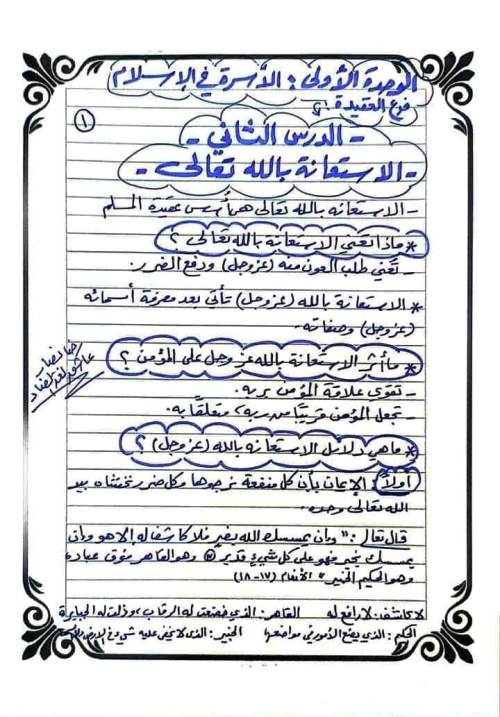 الوحدة الأولى: الأسرة في الإسلام
فرع العقيدة:
١
- الدرس الثاني -
- الاستعانة بالله تعالى -
- الاستعانة بالله تعالى هي أسس عقيدة المسلم
* ماذا تعني الاستعانة بالله تعالى؟
- تعني طلب العون منه (عز وجل) ودفع الضرر.
* الاستعانة بالله (عز وجل) تأتي بعد معرفة أسمائه
(عز وجل) وصفاته.
* ما أثر الاستعانة بالله عز وجل على المؤمن؟
- تقوي علاقة المؤمن بربه.
- تجعل المؤمن قريبًا من ربه، متعلقًا به.
* ما هي دلائل الاستعانة بالله (عز وجل)؟
أولاً: الإيمان بأن كل منفعة نرجوها وكل ضرر نخشاه بيد
الله تعالى وحده.
قال تعالى: "وإن يمسسك الله بضر فلا كاشف له إلا هو وإن
يمسسك بخير فهو على كل شيء قدير وهو القاهر فوق عباده
وهو الحكيم الخبير" الأنعام (١٧-١٨)
لا كاشف: لا رافع له القاهر: الذي خضعت له الرقاب، وذلت له الجبابرة
الحكيم: الذي يضع الأمور في مواضعها الخبير: الذي لا يخفى عليه شيء في الأرض
عاشق لغة الضاد